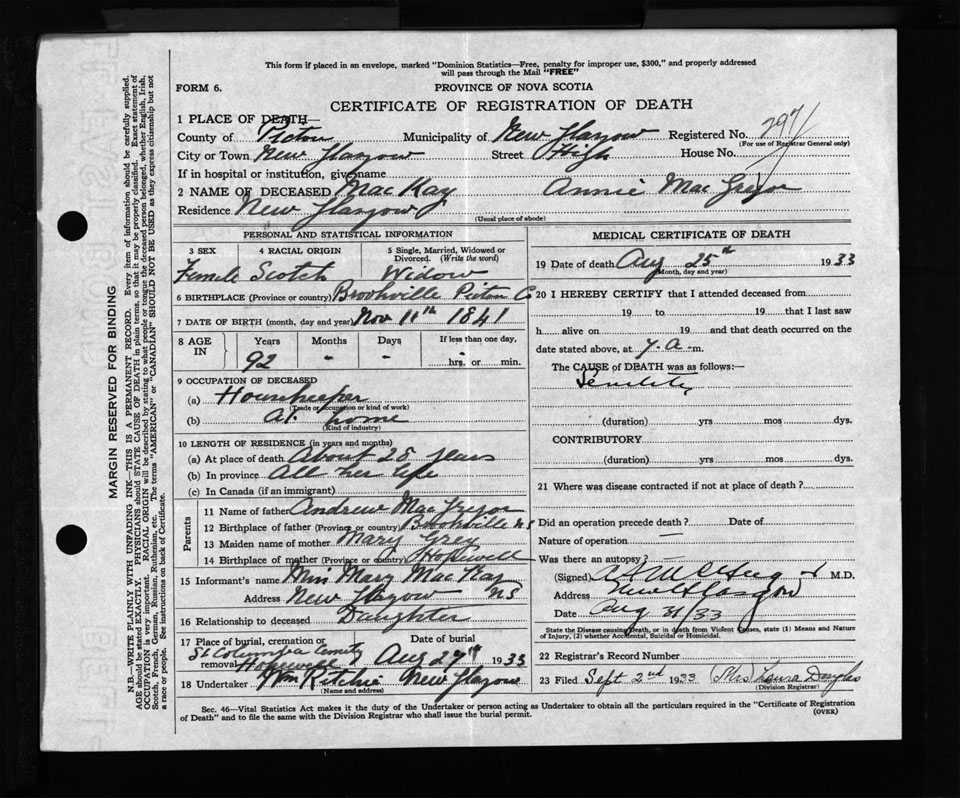 This form if placed in an envelope, marked "Dominion Statistics—Free, penalty for improper use, $300," and properly addressed
will pass through the Mail "FREE"
FORM 6.
PROVINCE OF NOVA SCOTIA
CERTIFICATE OF REGISTRATION OF DEATH
1 PLACE OF DEATH—
County of Pictou Municipality of New Glasgow Registered No. 297
(For use of Registrar General only)
City or Town New Glasgow Street High House No.
If in hospital or institution, give name
2 NAME OF DECEASED MacKay Annie MacGregor
Residence New Glasgow
(Usual place of abode)
PERSONAL AND STATISTICAL INFORMATION
3 SEX 4 RACIAL ORIGIN 5 Single, Married, Widowed or Divorced. (Write the word)
Female Scotch Widow
6 BIRTHPLACE (Province or country) Brookville Pictou Co
7 DATE OF BIRTH (month, day and year) Nov 11th 1841
8 AGE IN Years Months Days If less than one day,
92 - - hrs. or min.
9 OCCUPATION OF DECEASED
(a) Housekeeper
(Trade or occupation or kind of work)
(b) At home
(Kind of industry)
10 LENGTH OF RESIDENCE (in years and months)
(a) At place of death About 28 years
(b) In province All her life
(c) In Canada (if an immigrant)
Parents
11 Name of father Andrew MacGregor
12 Birthplace of father (Province or country) Brookville NS
13 Maiden name of mother Mary Grey
14 Birthplace of mother (Province or country) Hopewell
15 Informant's name Miss Mary MacKay
Address New Glasgow NS
16 Relationship to deceased Daughter
17 Place of burial, cremation or removal Date of burial
St Columba Cemty
Hopewell Aug 27th 1933
18 Undertaker Wm Ritchie New Glasgow
(Name and address)
MEDICAL CERTIFICATE OF DEATH
19 Date of death Aug 25th 1933
(Month, day and year)
20 I HEREBY CERTIFY that I attended deceased from
19 to 19 that I last saw
h alive on 19 and that death occurred on
date stated above, at 7.a.m.
The CAUSE of DEATH was as follows:—
Senility
(duration) yrs mos dys.
CONTRIBUTORY
(duration) yrs mos dys.
21 Where was disease contracted if not at place of death?
Did an operation precede death? Date of
Nature of operation —
Was there an autopsy?
(Signed) M.D.
Address New Glasgow
Date Aug 31/33
State the Disease causing Death, or in death from Violent Causes, state (1) Means and Nature
of Injury, (2) whether Accidental, Suicidal or Homicidal.
22 Registrar's Record Number
23 Filed Sept 2nd 1933 (Mrs) Laura Douglas
(Division Registrar)
Sec. 46—Vital Statistics Act makes it the duty of the Undertaker or person acting as Undertaker to obtain all the particulars required in the "Certificate of Registration
of Death" and to file the same with the Division Registrar who shall issue the burial permit.
(OVER)
MARGIN RESERVED FOR BINDING
N.B.—WRITE PLAINLY WITH UNFADING INK—THIS IS A PERMANENT RECORD. Every item of information should be carefully supplied.
AGE should be stated EXACTLY. PHYSICIANS should STATE CAUSE OF DEATH in plain terms, so that it may be properly classified. Exact statement of
OCCUPATION is very important. RACIAL ORIGIN will be described by stating to what people or tongue the deceased person belonged, whether English, Irish,
Scotch, French, German, Russian, Ruthenian, etc. The terms "AMERICAN" or "CANADIAN" SHOULD NOT BE USED as they express citizenship but not
a race or people. See instructions on back of Certificate.